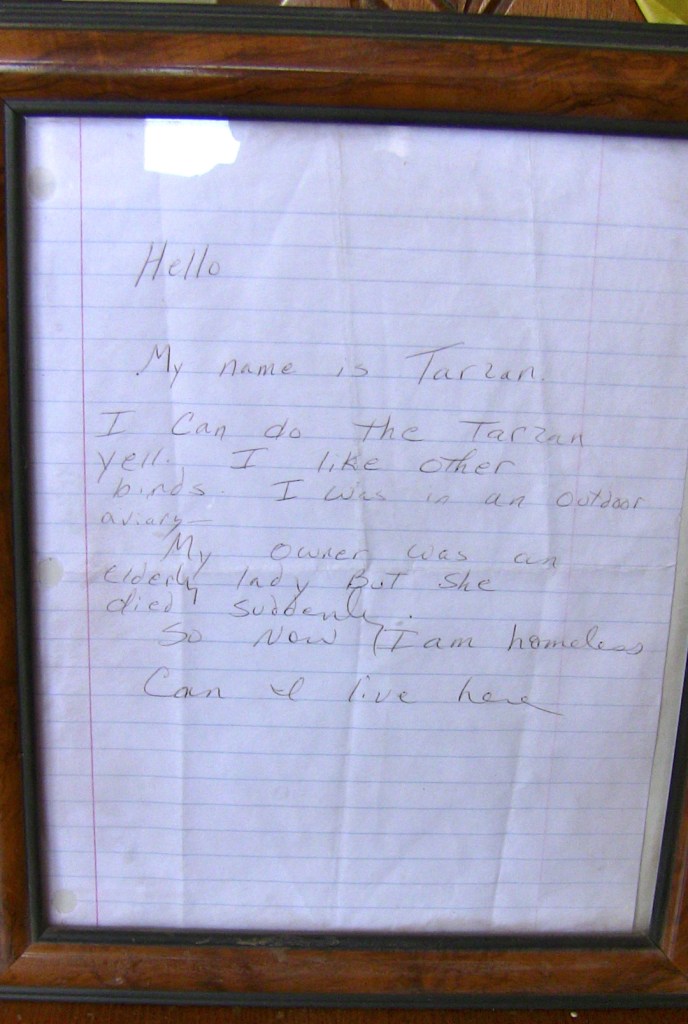 Hello
My name is Tarzan.
I Can do the Tarzan
yell. I like other
birds. I was in an outdoor
aviary—
My owner was an
elderly lady But she
died suddenly.
So Now I am homeless
Can I live here